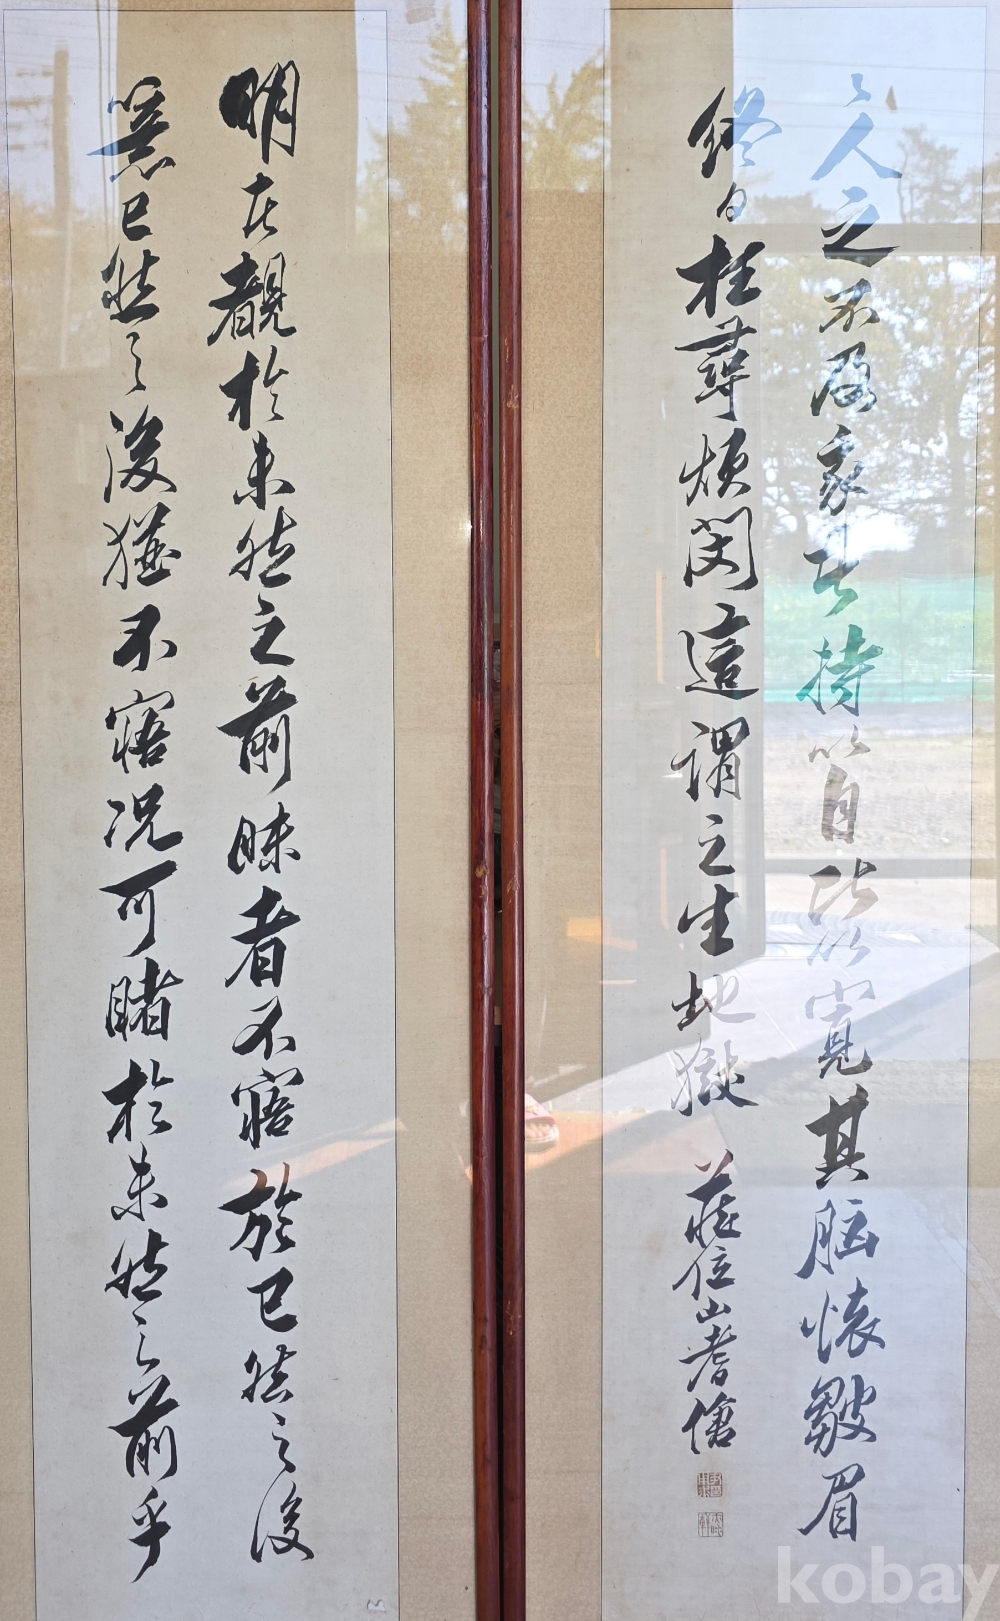 人之不及家
持以自
以寬其脳懐皺眉
終日枉尋煩悶這謂之生地獄
位山耆
明在覩於未然之前昧者不寤於已然之後
已然之後猶不寤況可睹於未然之前乎
kobay